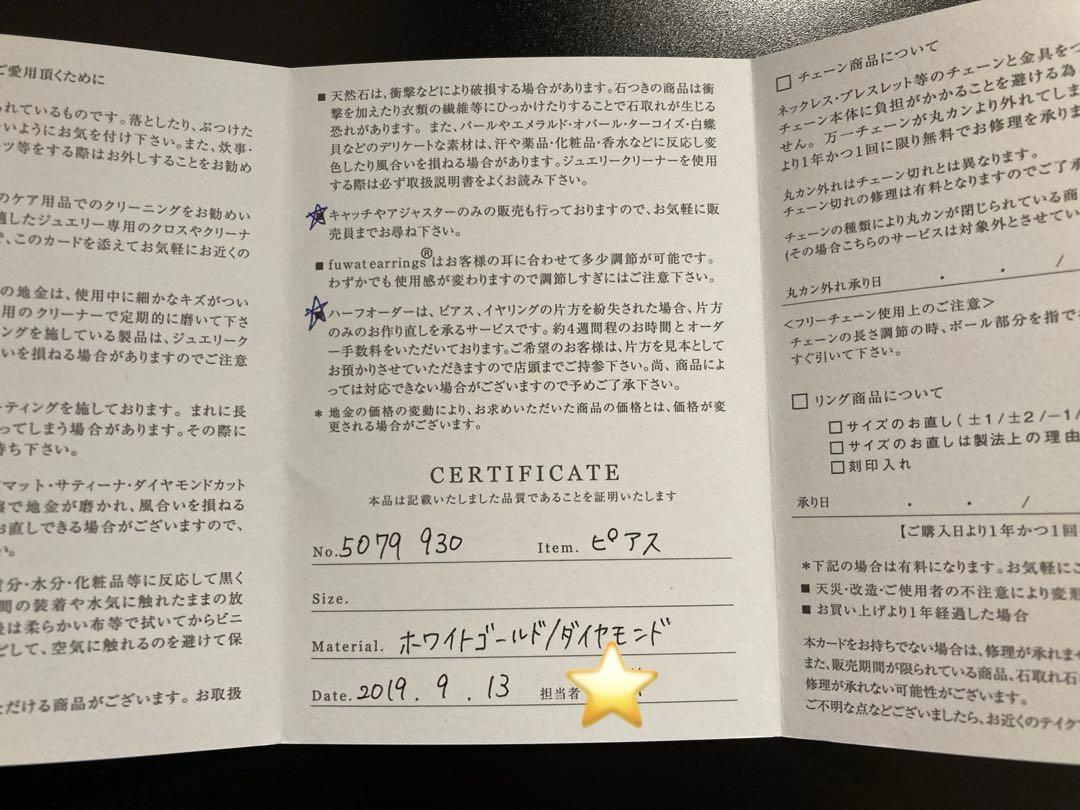 ご愛用頂くために
られているものです。落としたり、ぶつけた
いようにお気を付け下さい。また、炊事・
ーツ等をする際はお外しすることをお勧め
のケア用品でのクリーニングをお勧めい
適したジュエリー専用のクロスやクリーナ
で、このカードを添えてお気軽にお近くの
の地金は、使用中に細かなキズがつい
用のクリーナーで定期的に磨いて下さ
ィングを施している製品は、ジュエリーク
いを損ねる場合がありますのでご注意
ーティングを施しております。まれに長
ってしまう場合があります。その際に
持ち下さい。
マット・サティーナ・ダイヤモンドカット
擦で地金が磨かれ、風合いを損ねる
お直しできる場合がございますので、
い。
分・水分・化粧品等に反応して黒く
間の装着や水気に触れたままの放
後は柔らかい布等で拭いてからビニ
どして、空気に触れるのを避けて保
ただける商品がございます。お取扱
■ 天然石は、衝撃などにより破損する場合があります。石つきの商品は衝
撃を加えたり衣類の繊維等にひっかけたりすることで石取れが生じる
恐れがあります。また、パールやエメラルド・オパール・ターコイズ・白蝶
貝などのデリケートな素材は、汗や薬品・化粧品・香水などに反応し変
色したり風合いを損ねる場合があります。ジュエリークリーナーを使用
する際は必ず取扱説明書をよくお読み下さい。
キャッチやアジャスターのみの販売も行っておりますので、お気軽に販
売員までお尋ね下さい。
■ fuwat earrings®はお客様の耳に合わせて多少調節が可能です。
わずかでも使用感が変わりますので調節しすぎにはご注意下さい。
ハーフオーダーは、ピアス、イヤリングの片方を紛失された場合、片方
のみのお作り直しを承るサービスです。約4週間程のお時間とオーダ
ー手数料をいただいております。ご希望のお客様は、片方を見本として
お預かりさせていただきますので店頭までご持参下さい。尚、商品によ
っては対応できない場合がございますので予めご了承下さい。
* 地金の価格の変動により、お求めいただいた商品の価格とは、価格が変
更される場合がございます。
CERTIFICATE
本品は記載いたしました品質であることを証明いたします
No. 5079 930 Item. ピアス
Size.
Material. ホワイトゴールド/ダイヤモンド
Date. 2019. 9. 13 担当者
□ チェーン商品について
ネックレス・ブレスレット等のチェーンと金具をつ
チェーン本体に負担がかかることを避ける為
せん。万一チェーンが丸カンより外れてしま
より1年かつ1回に限り無料でお修理を承りま
丸カン外れはチェーン切れとは異なります。
チェーン切れの修理は有料となりますのでご了承
チェーンの種類により丸カンが閉じられている商
(その場合こちらのサービスは対象外とさせてい
丸カン外れ承り日 ・ ・ /
<フリーチェーン使用上のご注意>
チェーンの長さ調節の時、ボール部分を指で
すぐ引いて下さい。
□ リング商品について
□ サイズのお直し(±1/±2/-1/
□ サイズのお直しは製法上の理由
□ 刻印入れ
承り日 ・ ・ /
【ご購入日より1年かつ1回
*下記の場合は有料になります。お気軽にご
■ 天災・改造・ご使用者の不注意により変形
■ お買い上げより1年経過した場合
本カードをお持ちでない場合は、修理が承れませ
また、販売期間が限られている商品、石取れ石
修理が承れない可能性がございます。
ご不明な点などございましたら、お近くのテイク